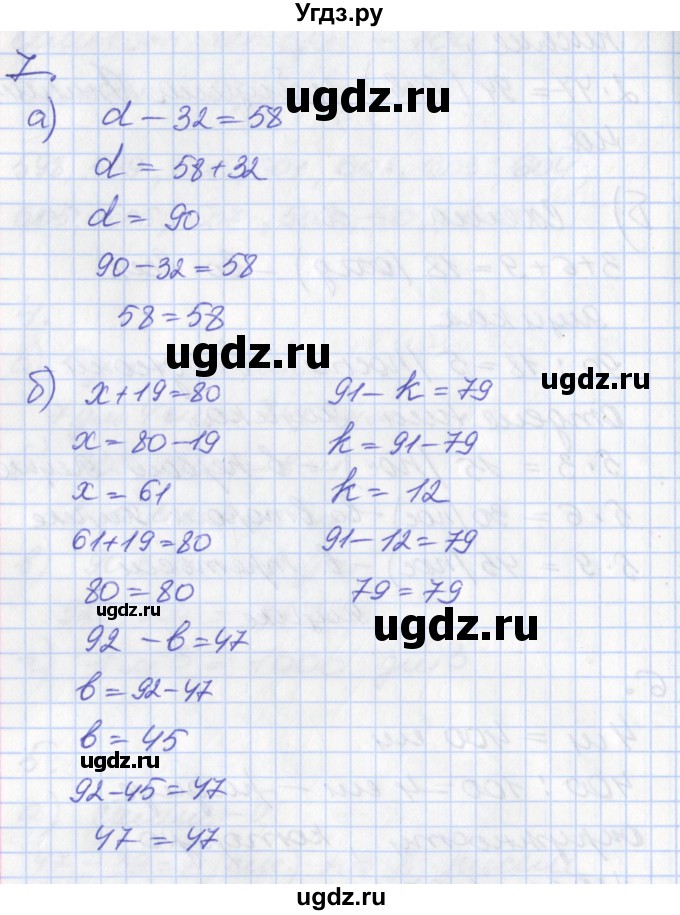 Угдз.ру
7.
а) d − 32 = 58
ugdz.ru
d = 58 + 32
d = 90
90 − 32 = 58
58 = 58
ugdz.ru
ugdz.ru
б) x + 19 = 80
x = 80 − 19
x = 61
61 + 19 = 80
80 = 80
ugdz.ru
91 − k = 79
k = 91 − 79
k = 12
91 − 12 = 79
79 = 79
ugdz.ru
92 − в = 47
в = 92 − 47
в = 45
ugdz.ru
92 − 45 = 47
47 = 47
ugdz.ru
ugdz.ru